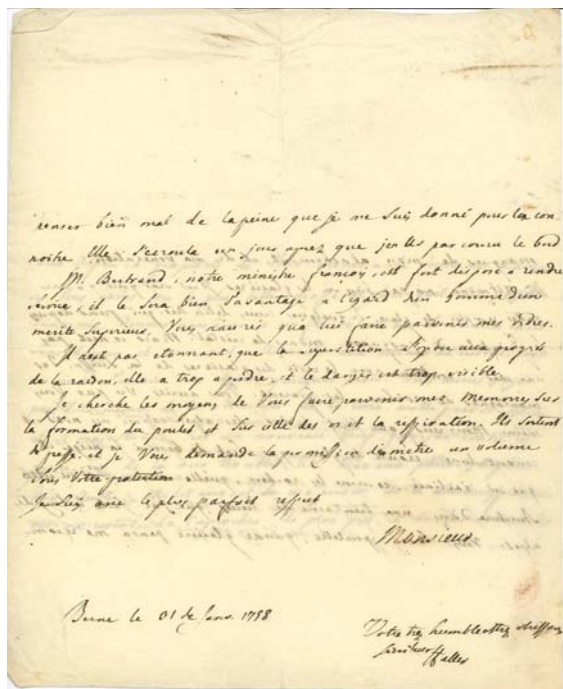 penser bien mal de la peine que je me suis donné pour la con
noitre. Elle s'ecroula un jour aprez que j'en eus parcouru le bord
M. Bertrand, notre ministre françois, est fort dispose a rendre
service, il le sera bien davantage a l'egard d'un homme d'un
merite superieur. Vous n'aures qu'a lui faire parvenir vos ordres.
Il n'est pas etonnant, que la superstition s'opose aux progrés
de la raison, elle a trop a perdre, et le danger est trop visible.
Je cherche les moyens de Vous faire parvenir mes Memoires sur
la formation du poulet et sur celle des os et la respiration. Ils sortent
de presse, et je Vous demande la permission de mettre un volume
sous Votre protection
Je suis avec le plus parfait respect
Monsieur
Berne le 01 de Janv. 1758
Votre trez humble et trez obeissant
serviteur
Haller